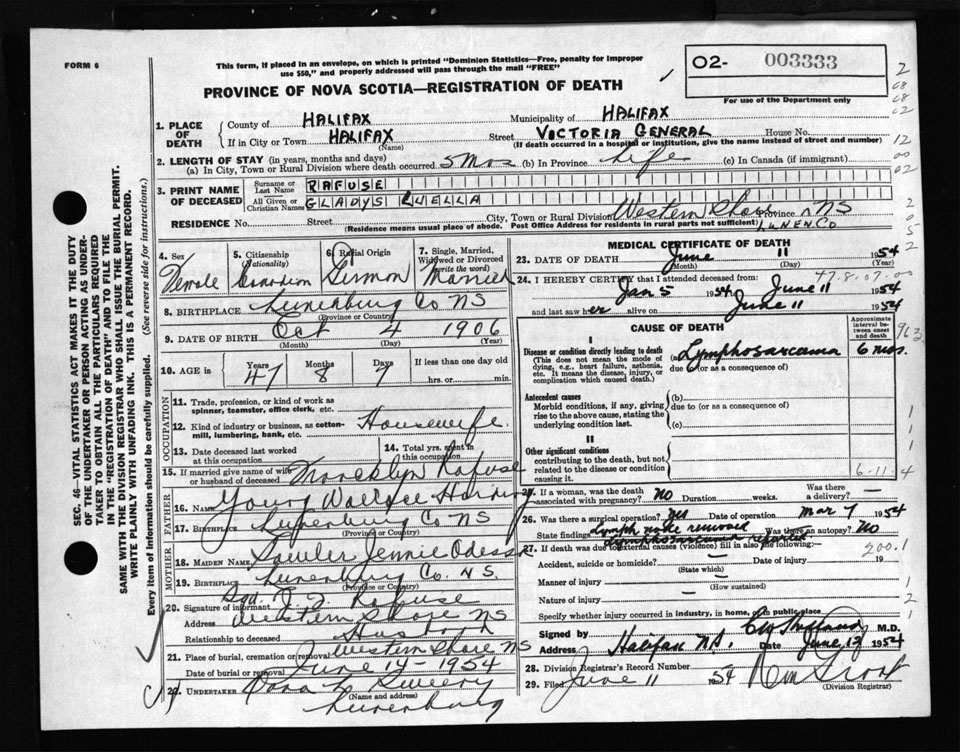 FORM 6
This form, if placed in an envelope, on which is printed "Dominion Statistics—Free, penalty for improper
use $50," and properly addressed will pass through the mail "FREE"
PROVINCE OF NOVA SCOTIA—REGISTRATION OF DEATH
O2- 003333
For use of the Department only
1. PLACE OF DEATH
County of HALIFAX Municipality of HALIFAX
If in City or Town HALIFAX Street VICTORIA GENERAL House No.
(Name) (If death occurred in a hospital or institution, give the name instead of street and number)
2. LENGTH OF STAY (in years, months and days)
(a) In City, Town or Rural Division where death occurred 5 Mos (b) In Province Life (c) In Canada (if immigrant)
3. PRINT NAME OF DECEASED
Surname or Last Name RAFUSE
All Given or Christian Names GLADYS LUELLA
RESIDENCE No. Street City, Town or Rural Division Western Shore Province NS
(Residence means usual place of abode. Post Office Address for residents in rural parts not sufficient) LUNEN CO
4. Sex Female
5. Citizenship (Nationality) Canadian
6. Racial Origin German
7. Single, Married, Widowed or Divorced (write the word) Married
8. BIRTHPLACE Lunenburg Co NS
(Province or Country)
9. DATE OF BIRTH Oct 4 1906
(Month) (Day) (Year)
10. AGE in Years 47 Months 8 Days 7 If less than one day old
hrs. or min.
OCCUPATION
11. Trade, profession, or kind of work as spinner, teamster, office clerk, etc.
12. Kind of industry or business, as cotton-mill, lumbering, bank, etc. Housewife
13. Date deceased last worked at this occupation
14. Total yrs. spent in this occupation
15. If married give name of wife or husband of deceased Rafuse
FATHER
16. NAME Young
17. BIRTHPLACE Lunenburg Co NS
(Province or Country)
MOTHER
18. MAIDEN NAME Jennie
19. BIRTHPLACE Lunenburg Co. N.S.
(Province or Country)
20. Signature of informant Sgd. Rafuse
Address Western Shore NS
Relationship to deceased Husband
21. Place of burial, cremation or removal Western Shore NS
Date of burial or removal June 14 - 1954
22. UNDERTAKER
(Name and address)
Lunenburg
MEDICAL CERTIFICATE OF DEATH
23. DATE OF DEATH June 11 1954
(Month) (Day) (Year)
24. I HEREBY CERTIFY that I attended deceased from:
Jan 5 1954 to June 11 1954
and last saw her alive on June 11 1954
CAUSE OF DEATH
Approximate interval between onset and death
I
Disease or condition directly leading to death (a) Lymphosarcoma 6 mos.
(This does not mean the mode of dying, e.g., heart failure, asthenia, etc. It means the disease, injury, or complication which caused death.)
due to (or as a consequence of)
Antecedent causes
Morbid conditions, if any, giving rise to the above cause, stating the underlying condition last.
(b)
due to (or as a consequence of)
(c)
II
Other significant conditions
contributing to the death, but not related to the disease or condition causing it.
6-11-4
25. If a woman, was the death associated with pregnancy? No Duration weeks. Was there a delivery? —
26. Was there a surgical operation? Yes Date of operation Mar 7 1954
State findings Lymph node removed Was there an autopsy? No
Lymphosarcoma reported
27. If death was due to external causes (violence) fill in also the following:—
200.1
Accident, suicide or homicide? Date of injury 19
(State which)
Manner of injury —
(How sustained)
Nature of injury —
Specify whether injury occurred in industry, in home, or in public place
Signed by M.D.
Address Halifax NS. Date June 1954
28. Division Registrar's Record Number
29. Filed June 11 1954
(Division Registrar)
SEC. 46—VITAL STATISTICS ACT MAKES IT THE DUTY
OF THE UNDERTAKER OR PERSON ACTING AS UNDER-
TAKER TO OBTAIN ALL THE PARTICULARS REQUIRED
IN THE "REGISTRATION OF DEATH" AND TO FILE THE
SAME WITH THE DIVISION REGISTRAR WHO SHALL ISSUE THE BURIAL PERMIT.
WRITE PLAINLY WITH UNFADING INK. THIS IS A PERMANENT RECORD.
Every item of information should be carefully supplied. (See reverse side for instructions.)